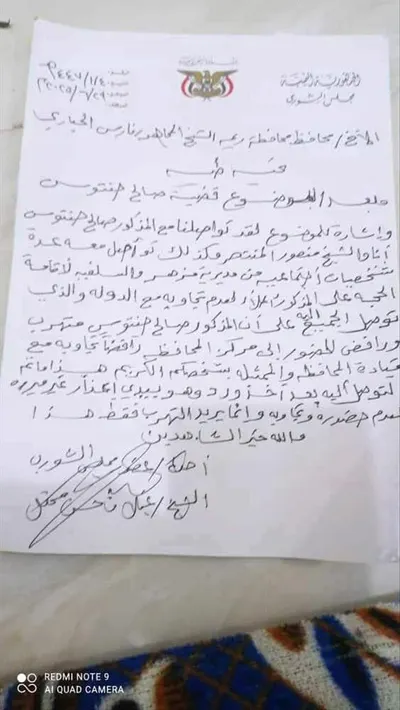 الجمهورية اليمنية
مجلس الشورى
١٤٤٧/١/٤هـ
٢٠٢٥/٦/٢٩م
الشيخ/ محافظ محافظة ريمه الشيخ المجاهد فارس الحباري
تحية طيبه
وبعد الموضوع قضية صالح حنتوس
وإشارة للموضوع لقد تواصلنا مع المذكور صالح حنتوس
أنا والشيخ منصور المنتصر وكذلك تواصل معه عدة
شخصيات إجتماعيه من مديرية مزهر والسلفيه لأقامة
الحجه على المذكور لعدم تجاوبه مع الدوله والذي
توصل الجميع اليه على أن المذكور صالح حنتوس متهرب
ورافض للحضور إلى مركز المحافظه رافضا تجاوبه مع
قيادة المحافظه والممثل بشخصكم الكريم هذا ما تم
لتوصل إليه بعد أخذ ورد وهو يبدي إعذار غير مبرره
لعدم حضوره وتجاوبه وإنما يريد التهرب فقط هذا
والله خير الشاهدين
عضو مجلس الشورى
الشيخ/
REDMI NOTE 9
AI QUAD CAMERA